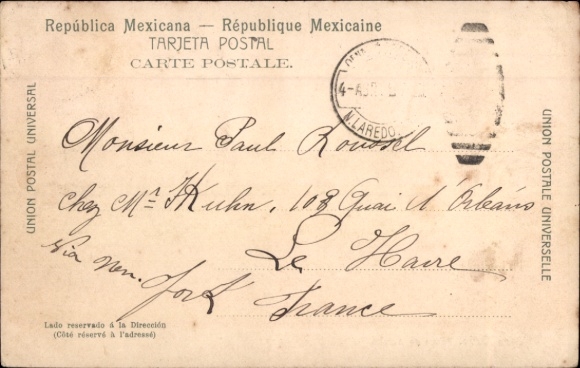 República Mexicana — République Mexicaine
TARJETA POSTAL
CARTE POSTALE.
4-
N. LAREDO
UNION POSTAL UNIVERSAL
UNION POSTALE UNIVERSELLE
Monsieur Paul Roussel
chez Mr. Kuhn, 108 Quai d'Orléans
Le Havre
France
via New. York
Lado reservado á la Dirección
(Côté réservé à l'adressé)